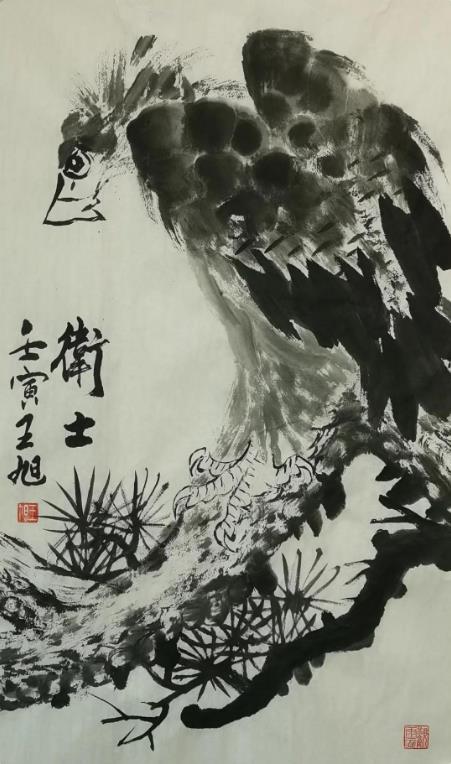 衛士
壬寅王旭